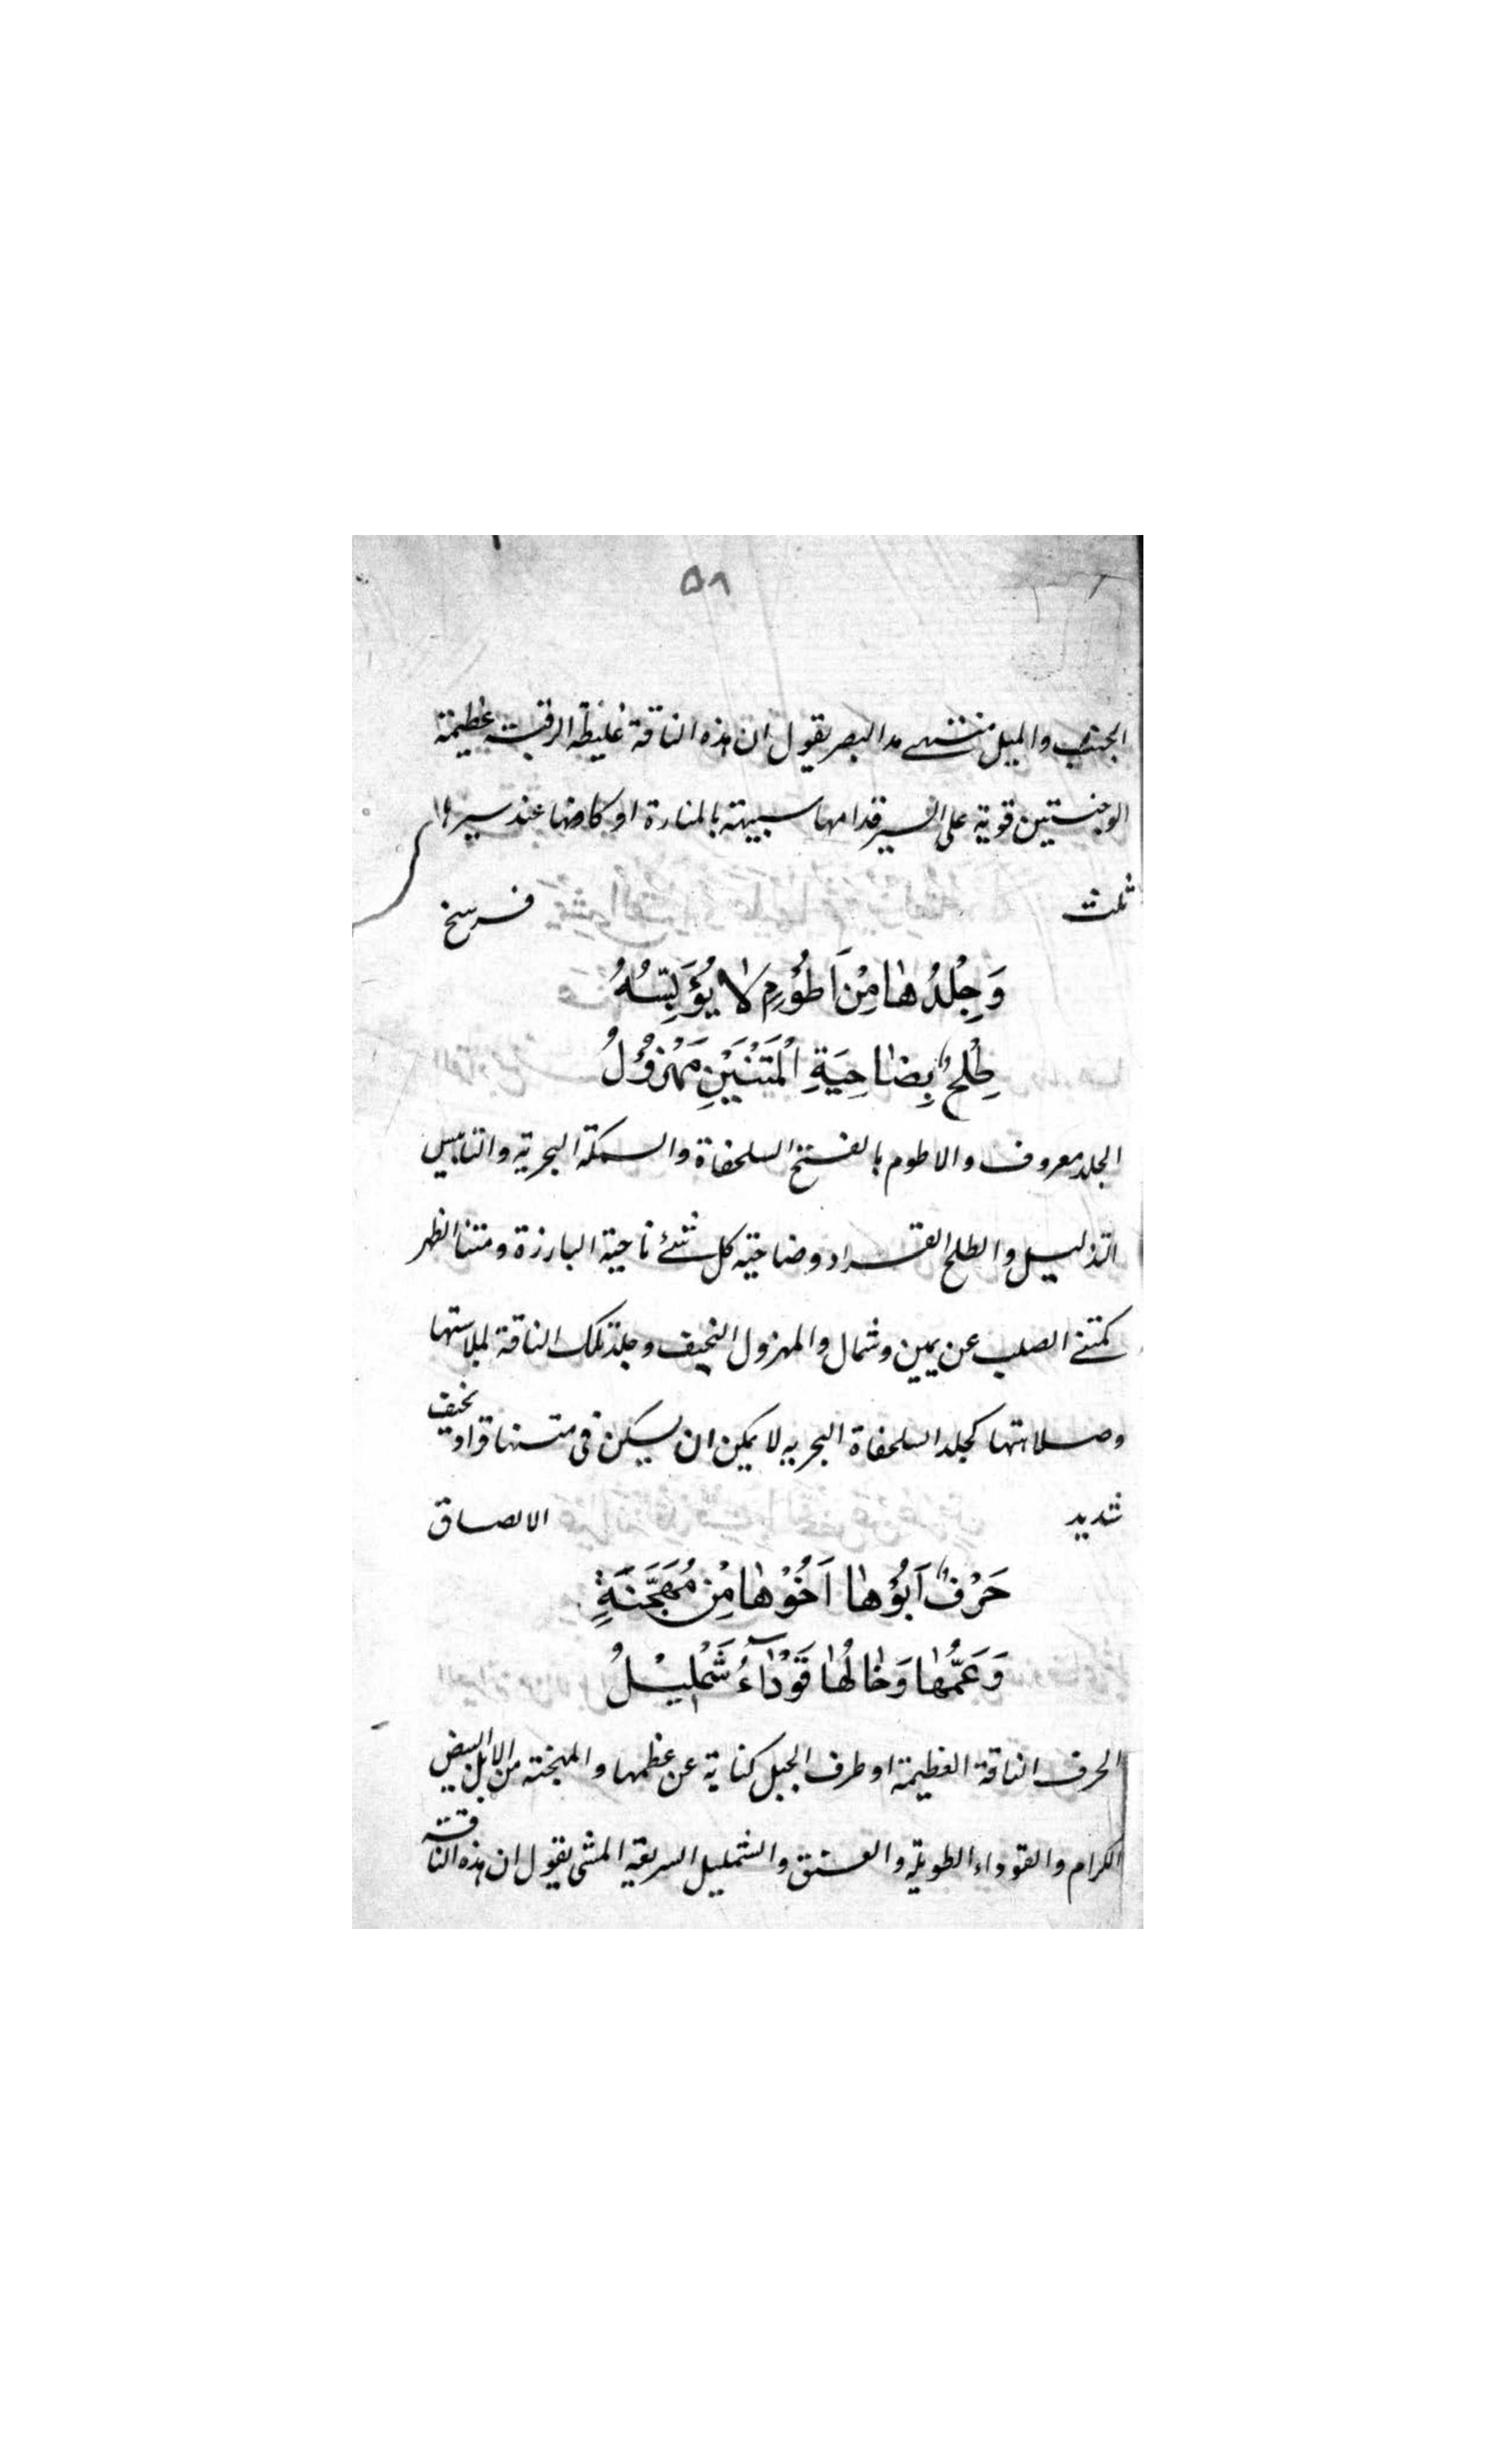 ٥٨
الجنب والميل منتهى مد البصر يقول ان هذه الناقة غليظة الرقبة عظيمة
الوجنتين قوية على السير قدامها سبيهة بالمنارة او كانها عند سيرها
ثلث فرسخ
وَجِلْدُهَا مِنْ اَطُوْمٍ لَا يُؤَيِّسُهُ
طِلْحٌ بِضَاحِيَةِ الْمَتْنَيْنِ مَهْزُوْلُ
الجلد معروف والاطوم بالفتح السلحفاة والسمكة البحرية والتاييس
التذليل والطلح القراد وضاحية كل شئ ناحية البارزة ومتنا الظهر
كمتنى الصلب عن يمين وشمال والمهزول النحيف وجلد تلك الناقة لملاستها
وصلابتها كجلد السلحفاة البحرية لا يمكن ان يسكن فى متنها قراد نحيف
شديد الالصاق
حَرْفٌ اَبُوْهَا اَخُوْهَا مِنْ مُهَجَّنَةٍ
وَعَمُّهَا وَخَالُهَا قَوْدَآءُ شَمْلِيْلُ
الحرف الناقة العظيمة او طرف الجبل كناية عن عظمها والمهجنة من الابل البيض
الكرام والقوداء الطويلة والعنق والشمليل السريعة المشى يقول ان هذه الناقة